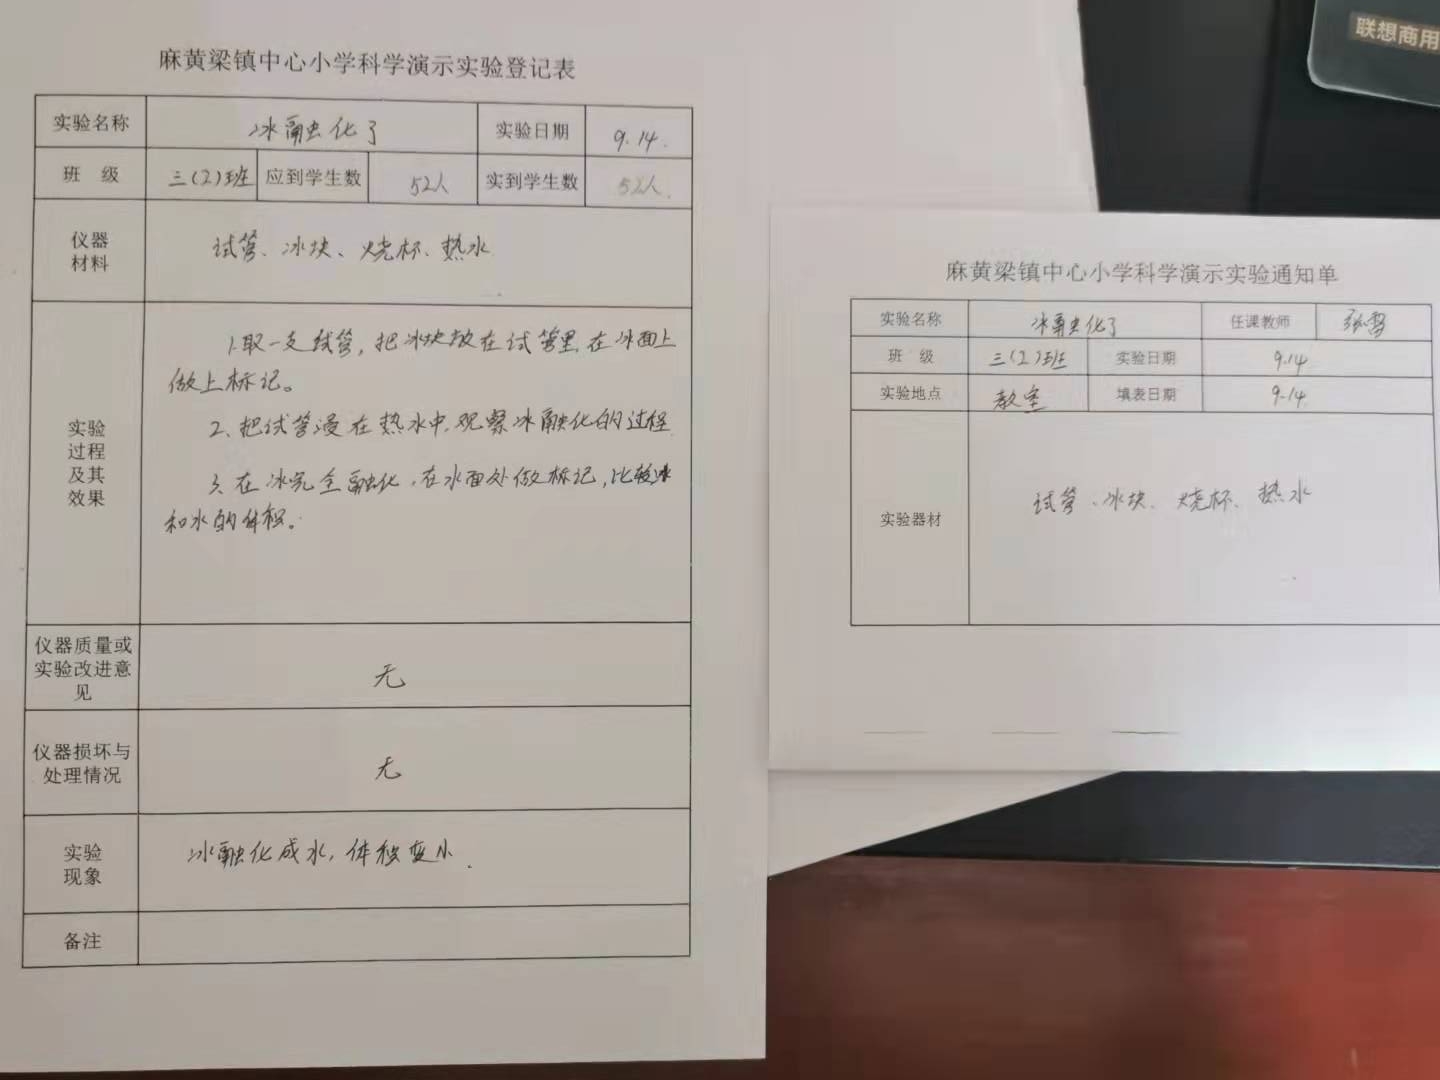 麻黄梁镇中心小学科学演示实验登记表
实验名称 冰融化了 实验日期 9.14.
班 级 三(2)班 应到学生数 52人 实到学生数 52人.
仪器材料 试管、冰块、烧杯、热水
实验过程及其效果
1.取一支试管，把冰块放在试管里,在冰面上
做上标记。
2、把试管浸在热水中,观察冰融化的过程
3、在冰完全融化,在水面处做标记,比较冰
和水的体积。
仪器质量或实验改进意见 无
仪器损坏与处理情况 无
实验现象 冰融化成水,体积变小.
备注
麻黄梁镇中心小学科学演示实验通知单
实验名称 冰融化了 任课教师
班 级 三(2)班 实验日期 9.14
实验地点 教室 填表日期 9.14
实验器材 试管、冰块、烧杯、热水
联想商用